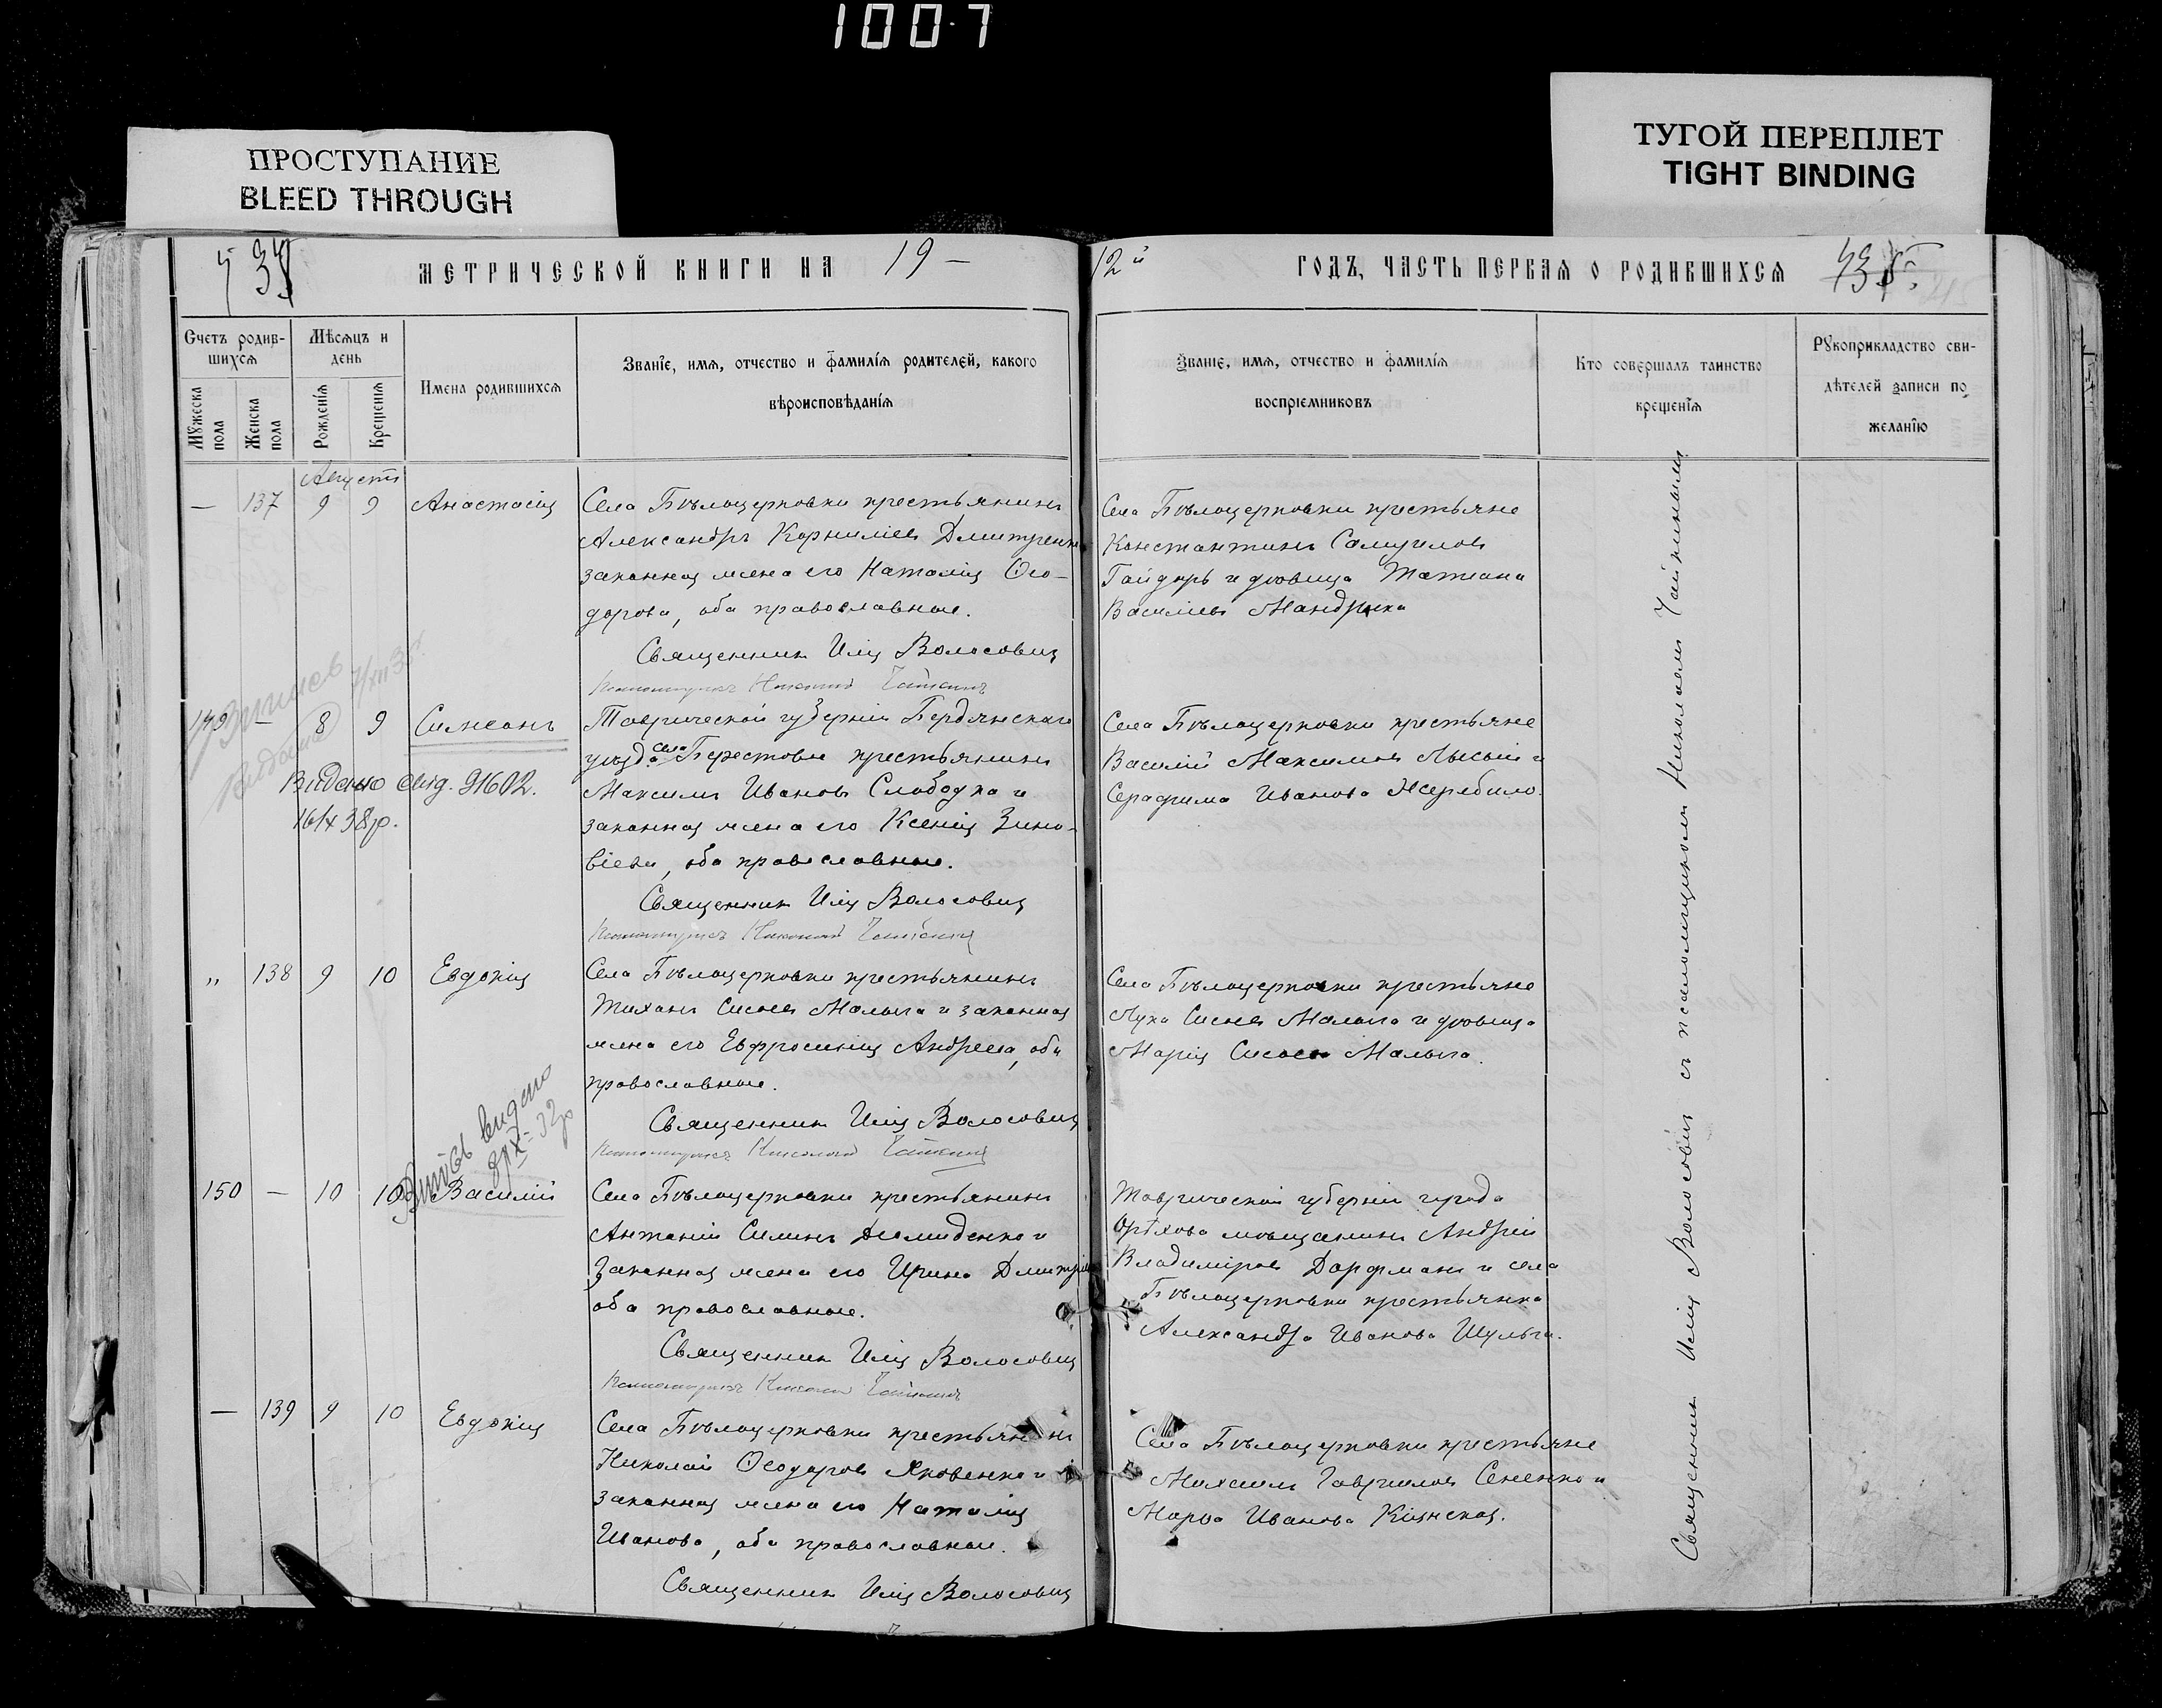 100.7
ПРОСТУПАНИЕ
BLEED THROUGH
ТУГОЙ ПЕРЕПЛЕТ
TIGHT BINDING
МЕТРИЧЕСКОЙ КНИГИ НА 19 —
12й ГОДЪ, ЧАСТЬ ПЕРВАЯ О РОДИВШИХСЯ
Счетъ родив-
шихся
Мужеска пола
Женска пола
Мѣсяцъ и
день
Рожденія
Крещенія
Имена родившихся
Званіе, имя, отчество и фамилія родителей, какого
вѣроисповѣданія
Званіе, имя, отчество и фамилія
воспріемниковъ
Кто совершалъ таинство
крещенія
Рукоприкладство сви-
дѣтелей записи по
желанію
Августъ
— 137 9 9 Анастасія
Села Бѣлоцерковки крестьянинъ
Александръ Корниліевъ Дмитренко
законная жена его Наталія Ѳео-
дорова, оба православные.
Священникъ Илія Волосовичъ
Псаломщикъ Николай Чайкинъ
Села Бѣлоцерковки крестьяне
Константинъ Самуиловъ
Гайдарь и дѣвица Татіана
Василіева Мандрыка
149 — 8 9 Симеонъ
Видано свід. 91602.
Таврической губерніи Бердянскаго
уѣзда села Берестовки крестьянинъ
Максимъ Ивановъ Слободка и
законная жена его Ксенія Зино-
віева, оба православные.
Священникъ Илія Волосовичъ
Псаломщикъ Николай Чайкинъ
Села Бѣлоцерковки крестьяне
Василій Максимовъ Лысый и
Серафима Иванова
" 138 9 10 Евдокія
Села Бѣлоцерковки крестьянинъ
Тихонъ Сисоевъ Малыга и законная
жена его Евфросинія Андреева, оба
православные.
Священникъ Илія Волосовичъ
Псаломщикъ Николай Чайкинъ
Села Бѣлоцерковки крестьяне
Лука Сисоевъ Малыга и дѣвица
Марія Сисоева Малыга.
150 — 10 10 Василій
Села Бѣлоцерковки крестьянинъ
Антоній Силинъ Демиденко и
законная жена его Ирина
оба православные.
Священникъ Илія Волосовичъ
Псаломщикъ Николай Чайкинъ
Таврической губерніи города
Орѣхова мѣщанинъ Андрей
Владиміровъ Дорфманъ и села
Бѣлоцерковки крестьянка
Александра Иванова Шульга.
— 139 9 10 Евдокія
Села Бѣлоцерковки крестьянинъ
Николай Ѳеодоровъ Яковенко и
законная жена его Наталія
Иванова, оба православные.
Священникъ Илія Волосовичъ
Села Бѣлоцерковки крестьяне
Михаилъ Гавриловъ Сененко и
Марѳа Иванова
Священникъ Илія Волосовичъ съ псаломщикомъ Николаемъ Чайкинымъ